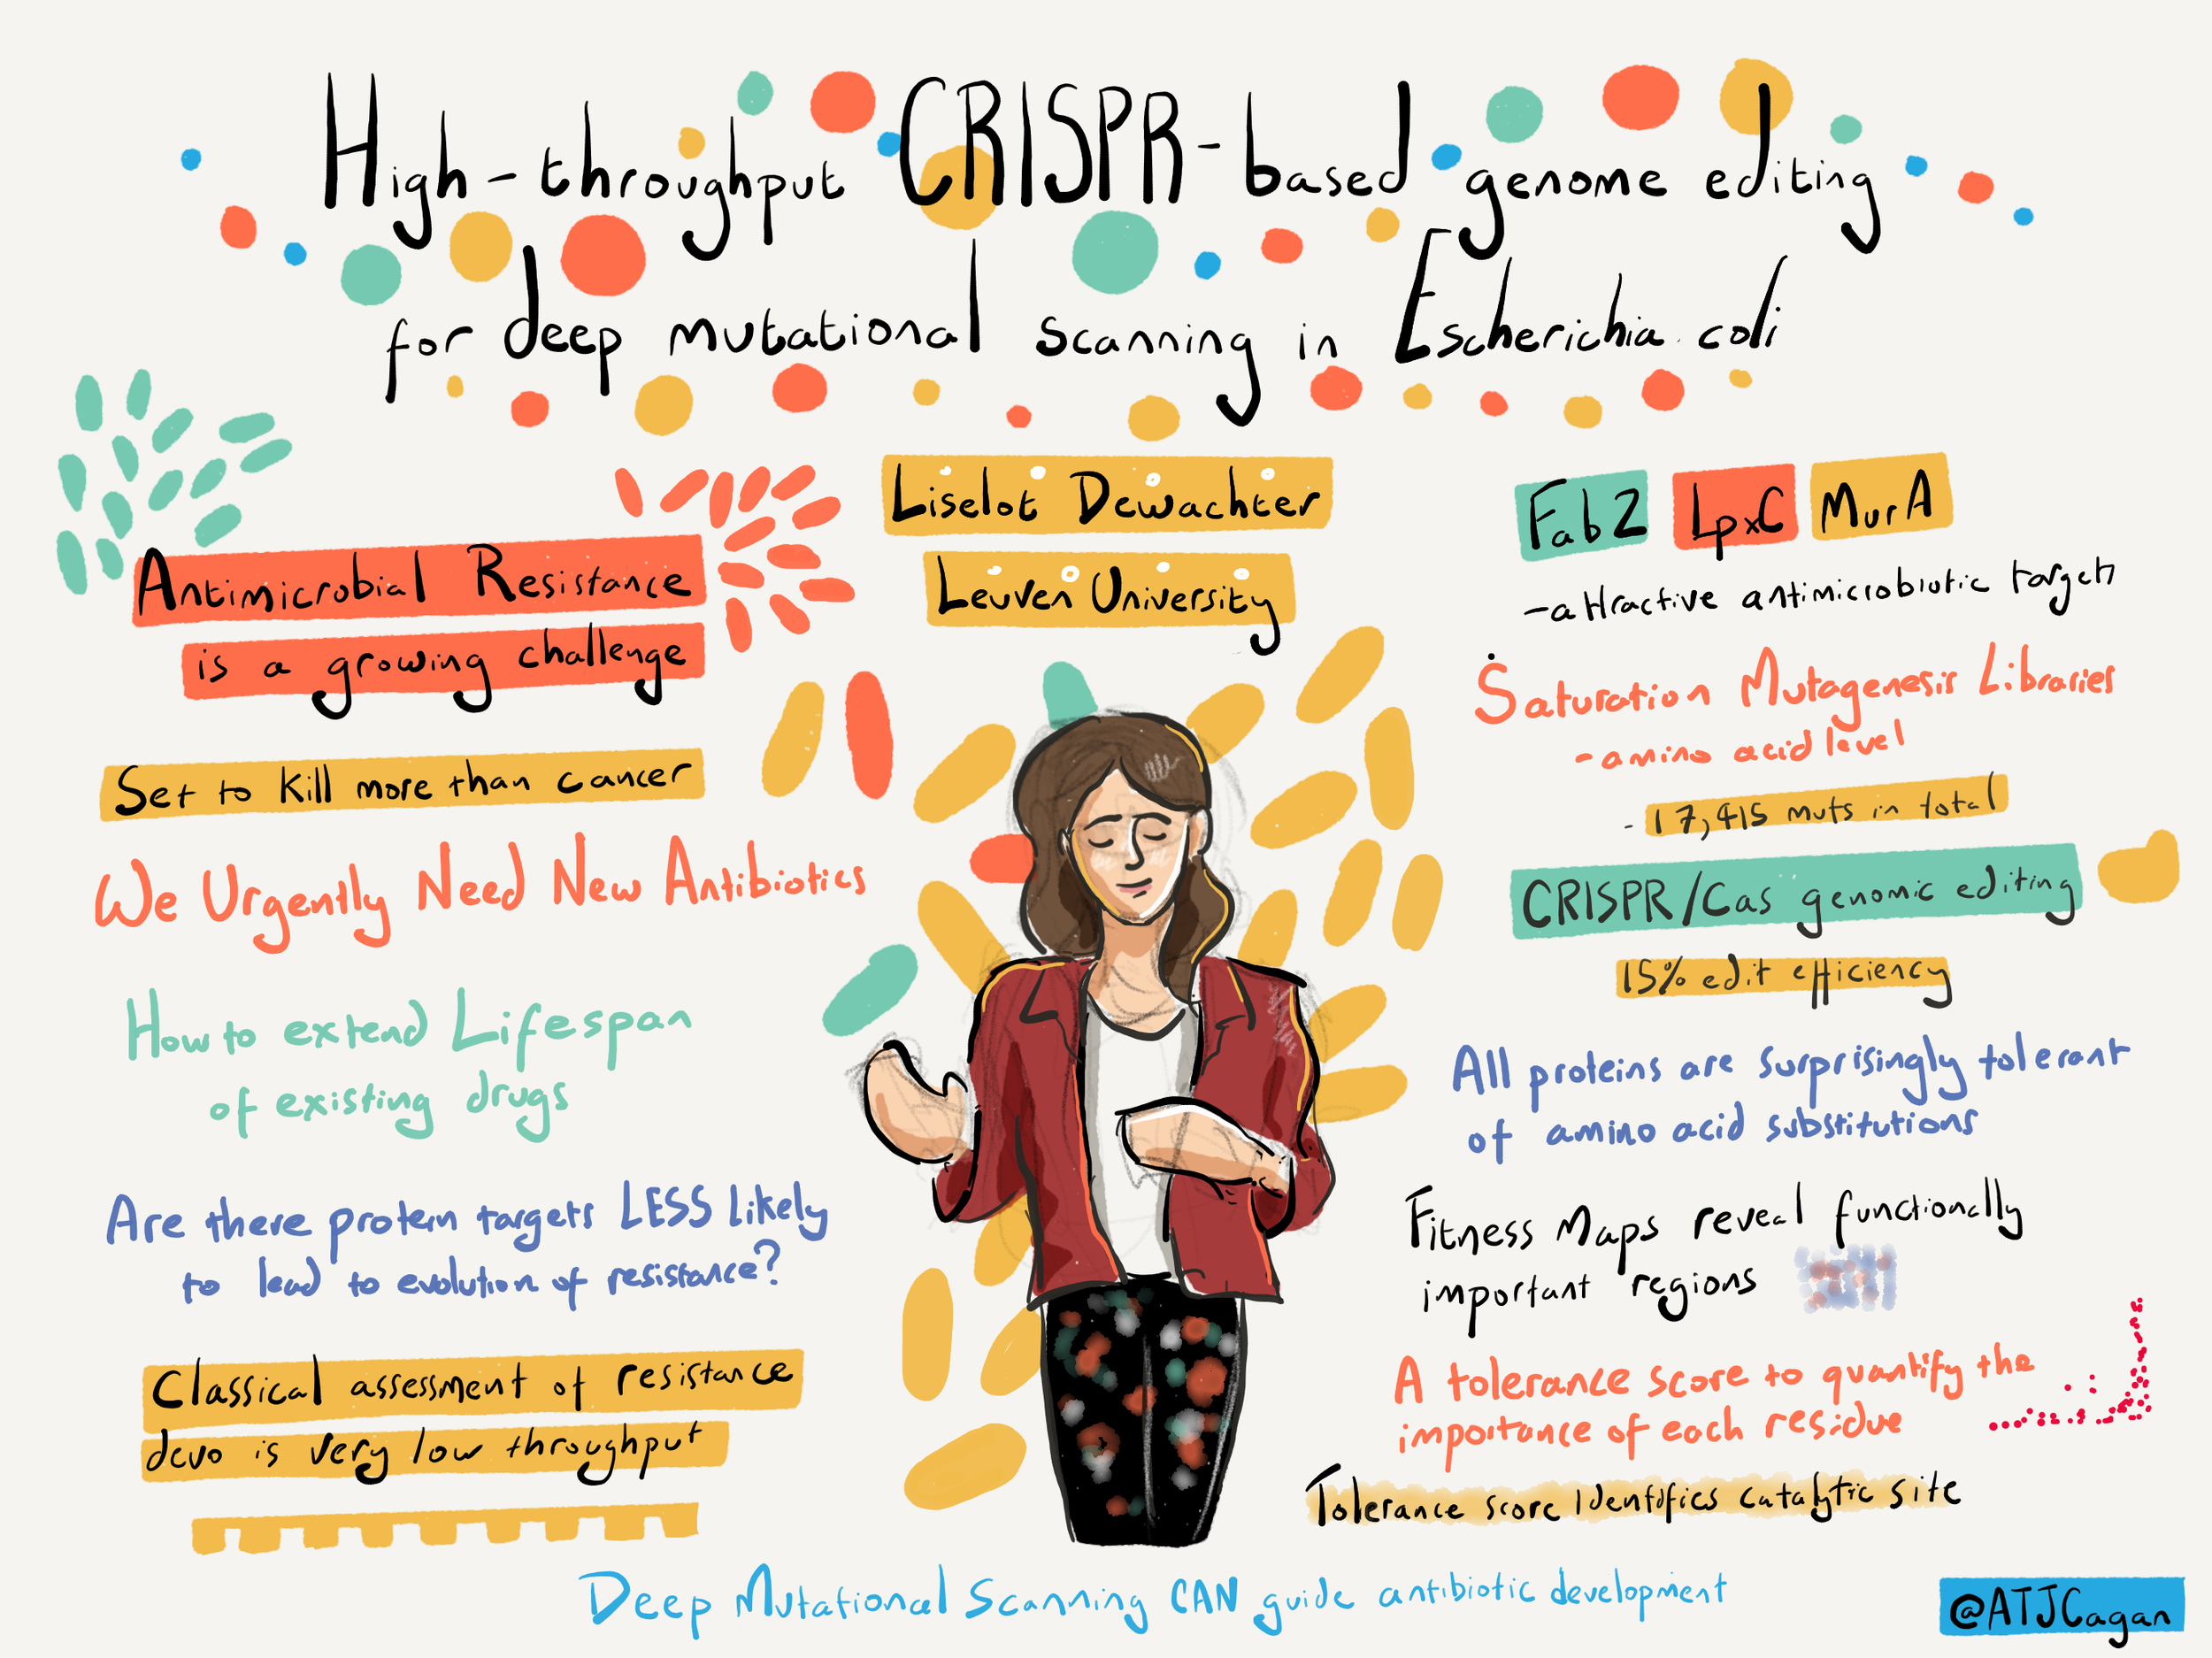 High-throughput CRISPR-based genome editing
for deep mutational scanning in Escherichia coli
Liselot Dewachter
Leuven University
Antimicrobial Resistance
is a growing challenge
Set to kill more than cancer
We Urgently Need New Antibiotics
How to extend Lifespan
of existing drugs
Are there protein targets LESS likely
to lead to evolution of resistance?
Classical assessment of resistance
devo is very low throughput
FabZ LpxC MurA
-attractive antimicrobiotic targets
Saturation Mutagenesis Libraries
-amino acid level
- 17,415 muts in total
CRISPR/Cas genomic editing
15% edit efficiency
All proteins are surprisingly tolerant
of amino acid substitutions
Fitness Maps reveal functionally
important regions
A tolerance score to quantify the
importance of each residue
Tolerance score identifies catalytic site
Deep Mutational Scanning CAN guide antibiotic development
@ATJCagan